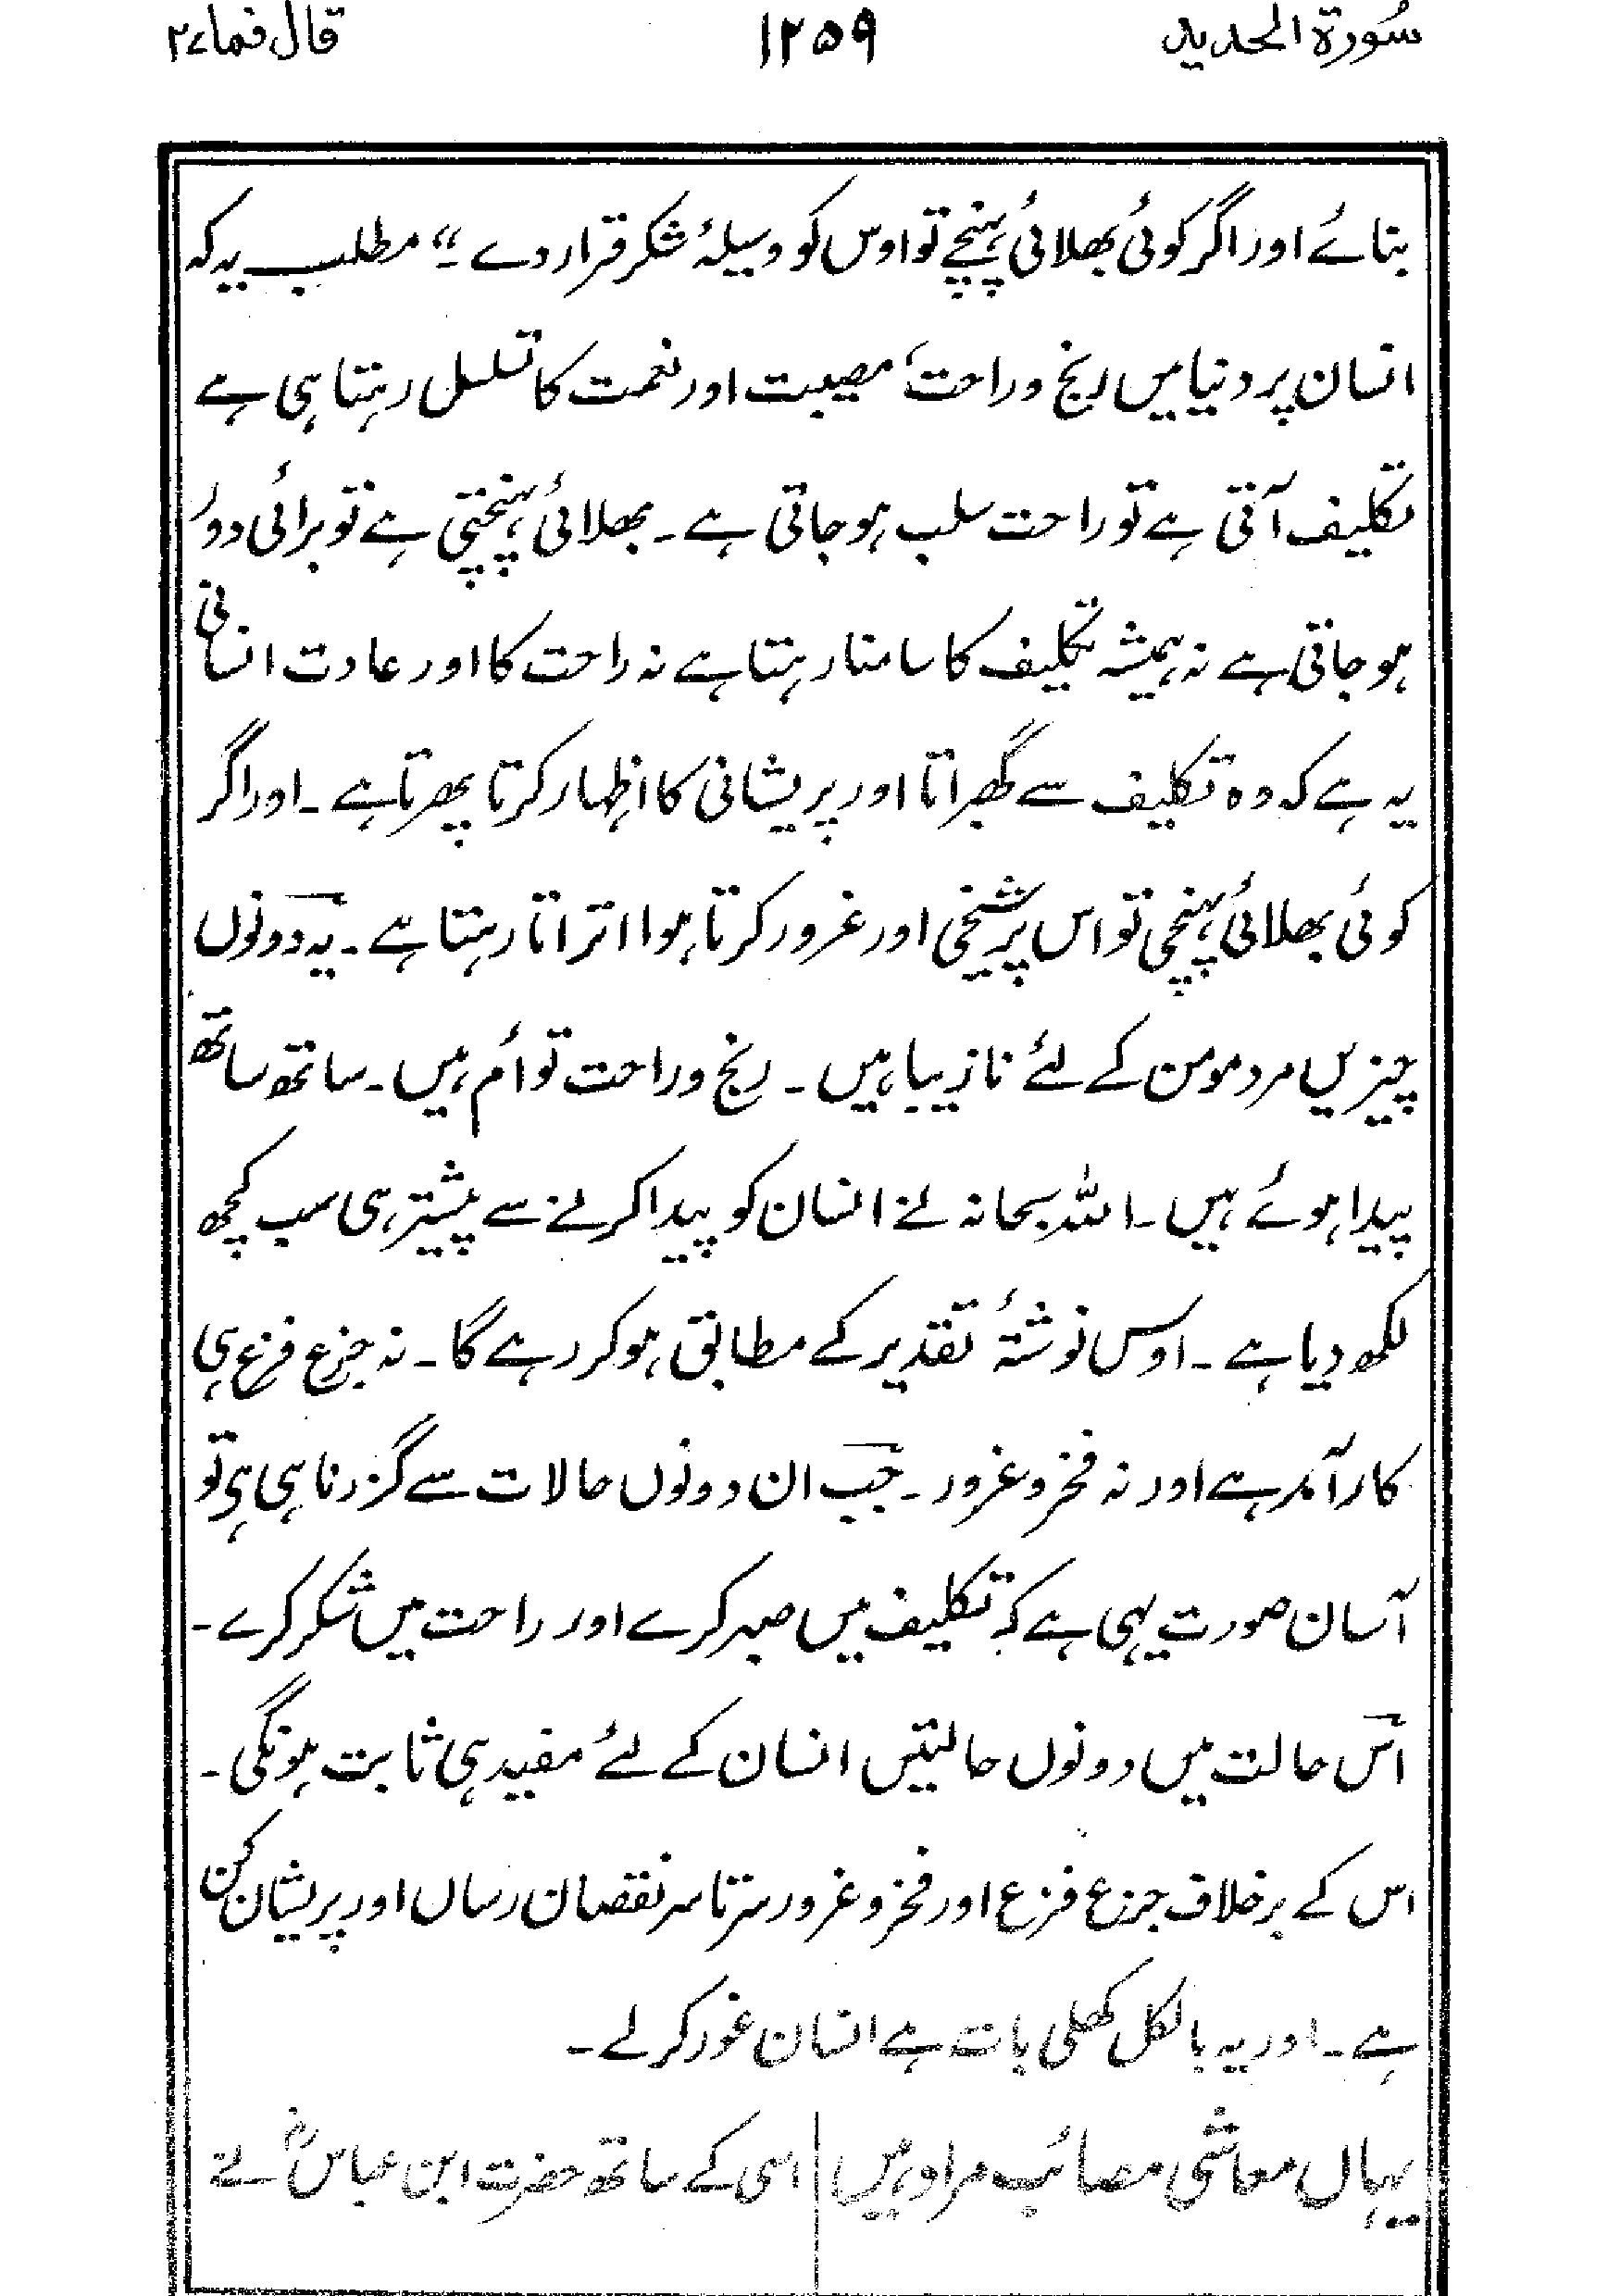 سُورۃ الحدید ۱۲۵۹ قال فما ۲۷
بتائے اور اگر کوئی بھلائی پہنچے تو اوس کو وسیلۂ شکر قرار دے ۔“ مطلب یہ کہ
انسان پر دنیا میں رنج و راحت ‘ مصیبت اور نعمت کا تسلسل رہتا ہی ہے
تکلیف آتی ہے تو راحت سلب ہو جاتی ہے ۔ بھلائی پہنچتی ہے تو برائی دور
ہو جاتی ہے نہ ہمیشہ تکلیف کا سامنا رہتا ہے نہ راحت کا اور عادت انسانی
یہ ہے کہ وہ تکلیف سے گھبراتا اور پریشانی کا اظہار کرتا پھرتا ہے ۔ اور اگر
کوئی بھلائی پہنچی تو اس پر شیخی اور غرور کرتا ہوا اتراتا رہتا ہے ۔ یہ دونوں
چیزیں مرد مومن کے لئے نازیبا ہیں ۔ رنج و راحت توأم ہیں ۔ ساتھ ساتھ
پیدا ہوئے ہیں ۔ اللہ سبحانہ نے انسان کو پیدا کرنے سے پیشتر ہی سب کچھ
لکھ دیا ہے ۔ اوس نوشتۂ تقدیر کے مطابق ہو کر رہے گا ۔ نہ جزع فزع ہی
کار آمد ہے اور نہ فخر و غرور ۔ جب ان دونوں حالات سے گزرنا ہی ہی تو
آسان صورت یہی ہے کہ تکلیف میں صبر کرے اور راحت میں شکر کرے ۔
اس حالت میں دونوں حالتیں انسان کے لئے مفید ہی ثابت ہونگی ۔
اس کے برخلاف جزع فزع اور فخر و غرور سرتاسر نقصان رساں اور پریشان کن
ہے ۔ اور یہ بالکل کھلی بات ہے انسان غور کرلے ۔
یہاں معاشی مصائب مراد ہیں | اسی کے ساتھ حضرت ابن عباسؓ نے